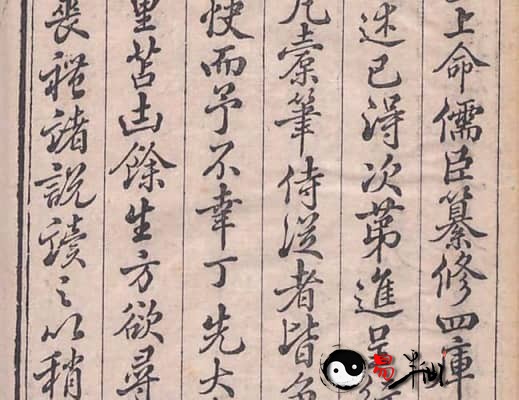 上命儒臣纂修四庫
述已得次第進呈
凡橐筆侍從者皆
快而予不幸丁先大
里苫凷餘生方欲尋
喪禮諸說讀之以稍
易